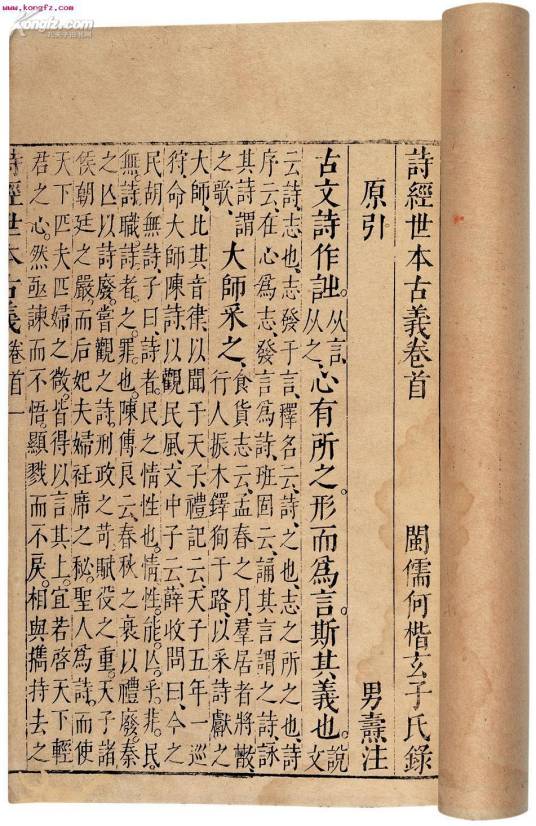 www.kongfz.com
Kongfz.com
孔夫子旧书网
詩經世本古義卷首
閩儒何楷玄子氏錄
原引
男燾注
古文詩作𧥳。从言、从之、心有所之。形而為言。斯其義也。說文
云、詩、志也、志發于言、釋名云、詩、之也、志之所之也、詩
序云、在心為志、發言為詩、班固云、誦其言謂之詩、詠
其詩謂之歌、大師采之、食貨志云、孟春之月、羣居者將散、
行人振木鐸徇于路、以采詩、獻之
大師、比其音律、以聞于天子、禮記云、天子五年一巡
狩、命大師陳詩、以觀民風、文中子云、薛收問曰、今之
民胡無詩、子曰、詩者、民之情性也。情性能亾乎。非民
無詩、職詩者之罪也、陳傅良云、春秋之衰以禮廢、秦
之亾以詩廢。嘗觀之詩、刑政之苛、賦役之重。天子諸
侯朝廷之嚴。而后妃夫婦衽席之秘。聖人為詩、而使
天下匹夫匹婦之微。皆得以言其上。宜若啓天下輕
君之心。然亟諫而不悟。顯戮而不戾。相與攜持去之
詩經世本古義 卷首 一